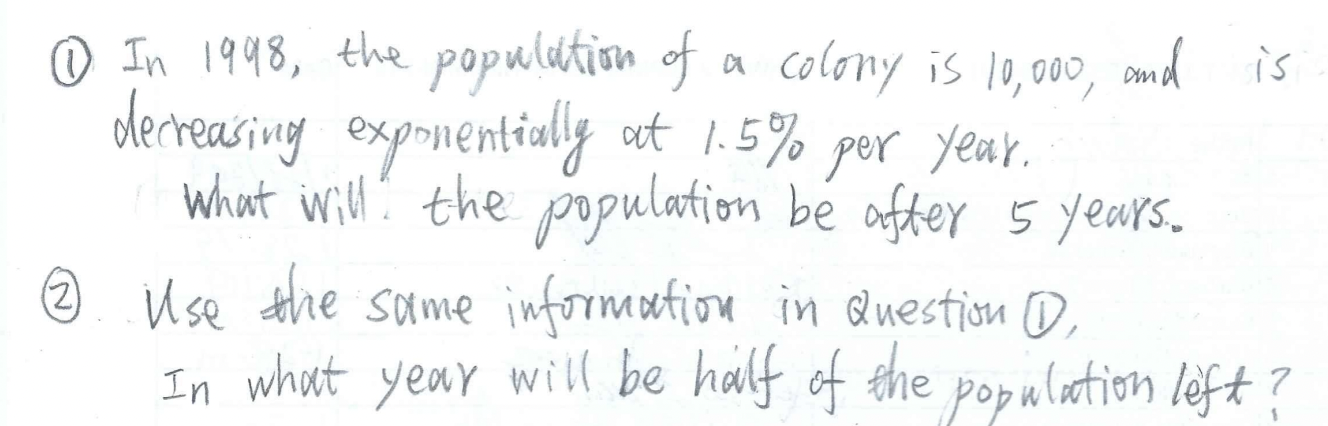 ① In 1998, the population of a colony is 10,000, and is
decreasing exponentially at 1.5% per year.
What will the population be after 5 years.
② Use the same information in Question ①,
In what year will be half of the population left?